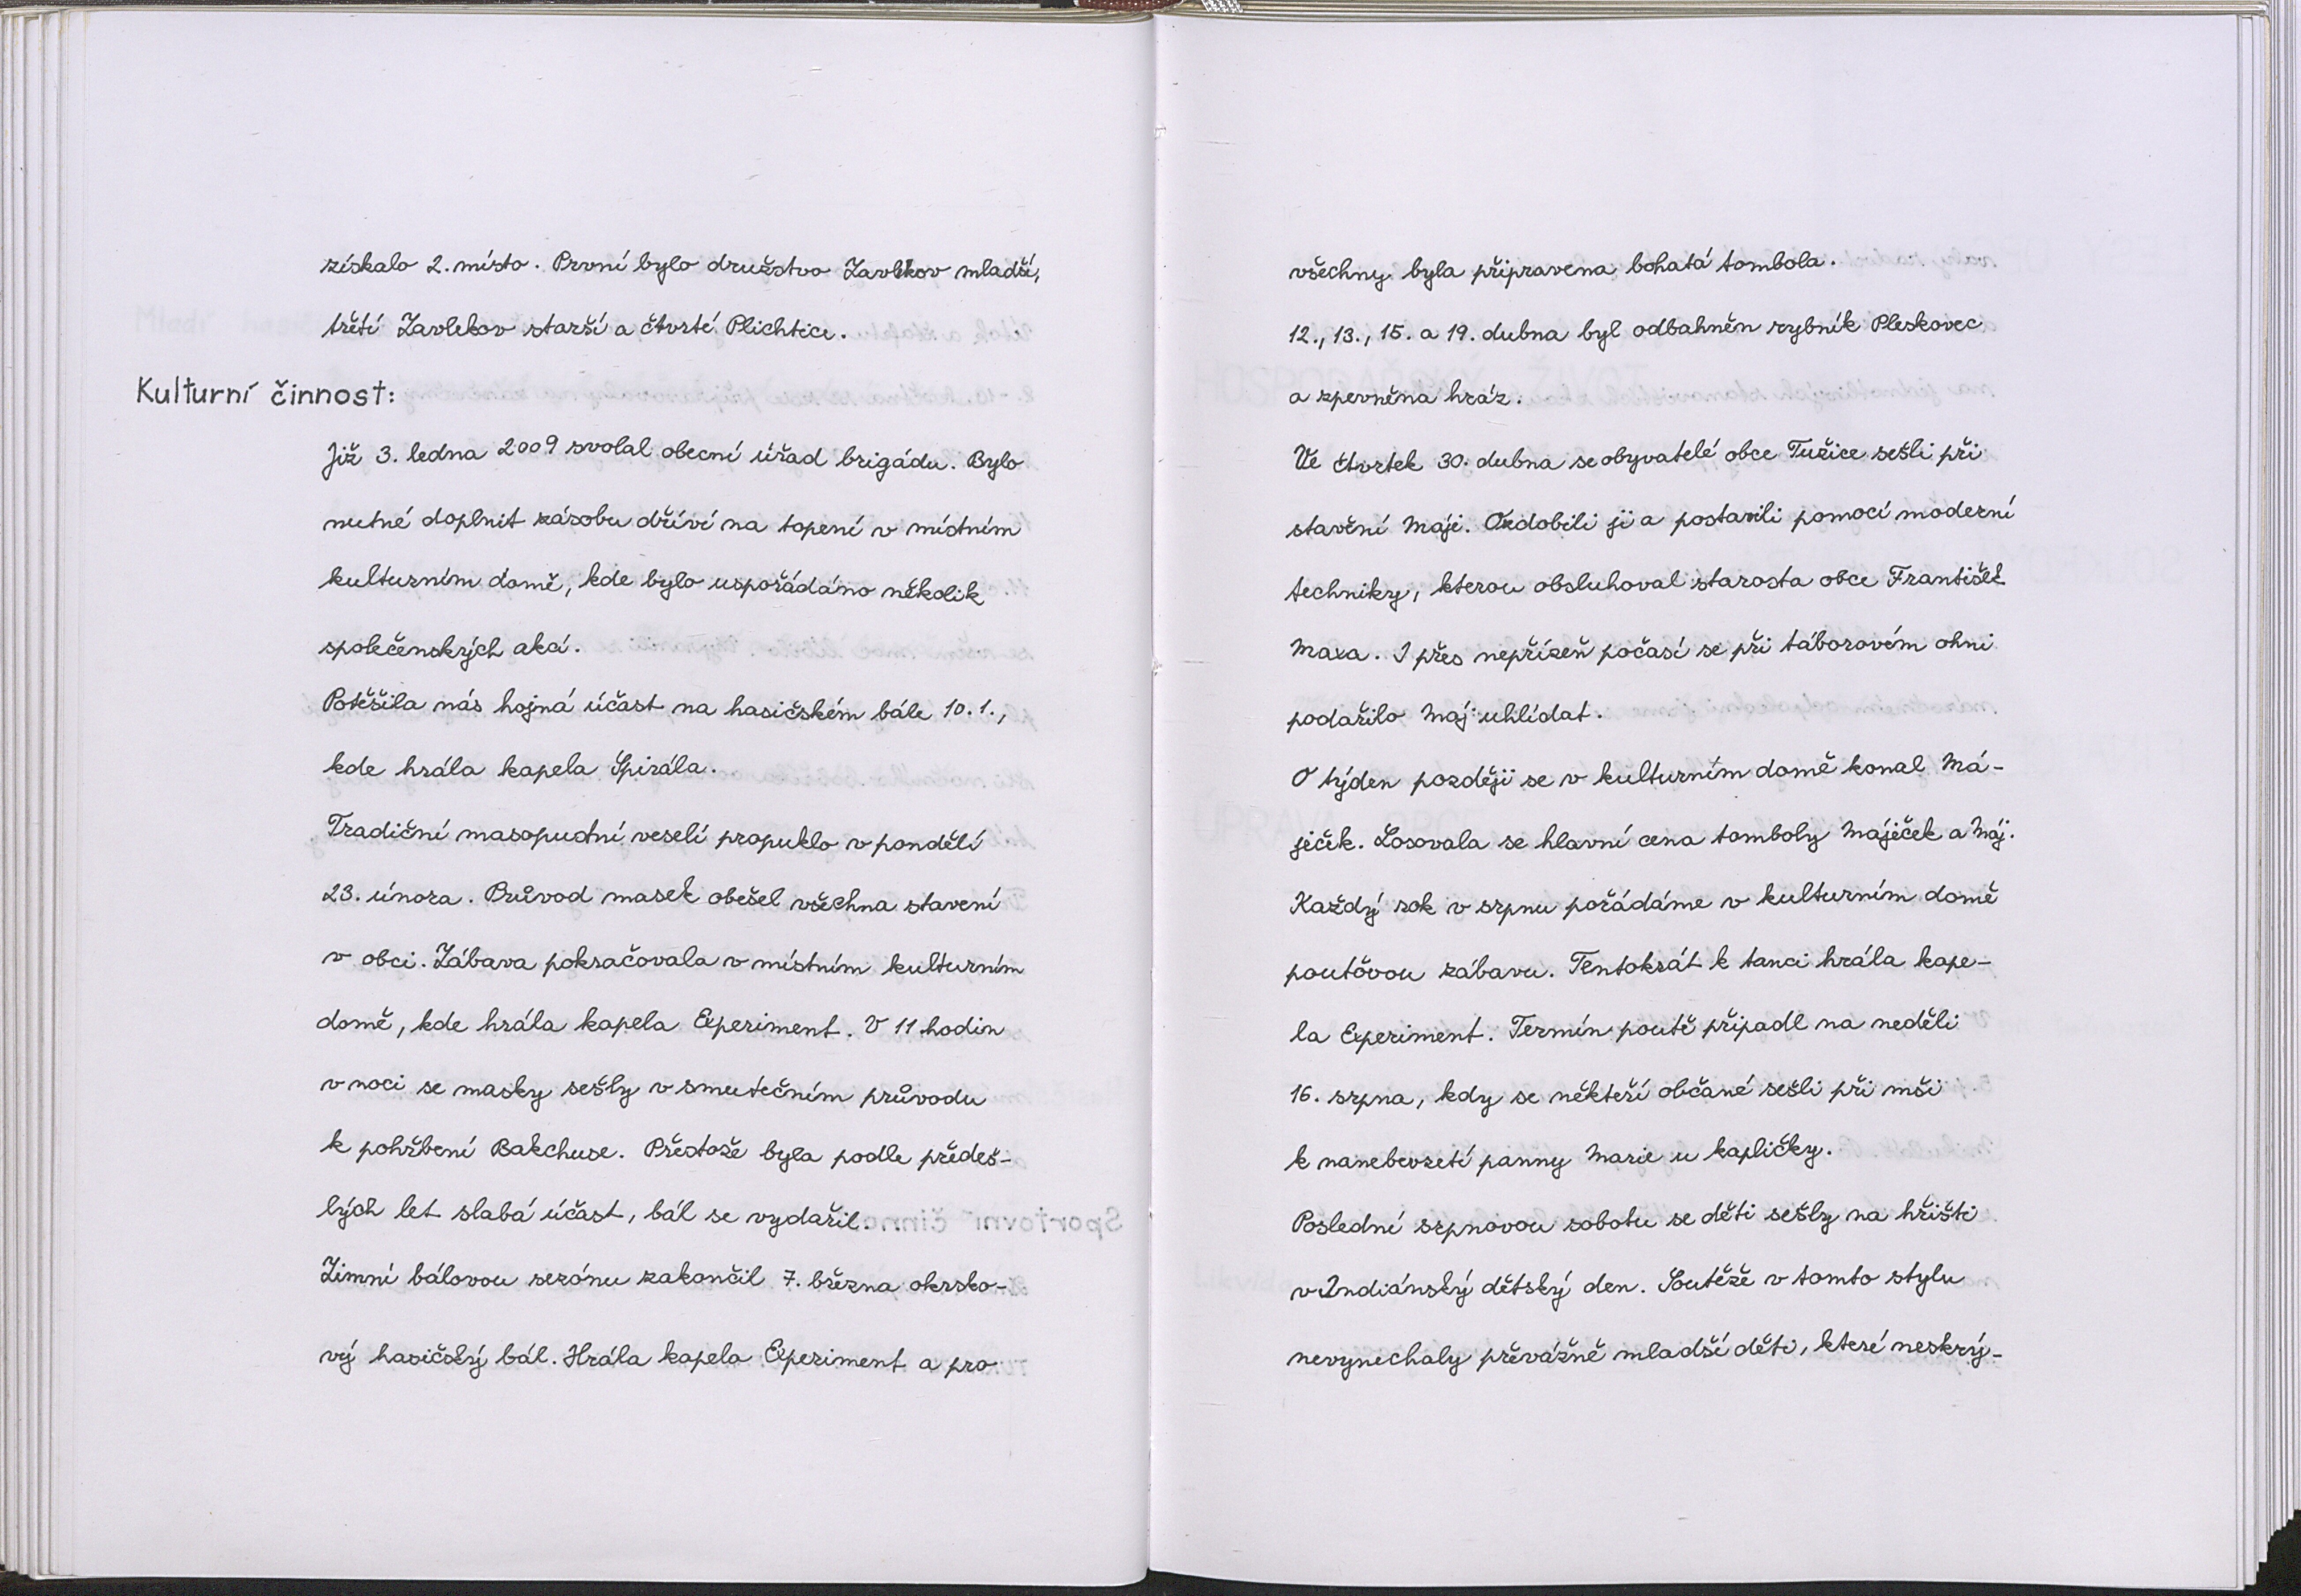 získalo 2. místo. První bylo družstvo Zavlekov mladší,
třetí Zavlekov starší a čtvrté Plichtice.
Kulturní činnost:
Již 3. ledna 2009 svolal obecní úřad brigádu. Bylo
nutné doplnit zásobu dříví na topení v místním
kulturním domě, kde bylo uspořádáno několik
společenských akcí.
Potěšila nás hojná účast na hasičském bále 10.1.,
kde hrála kapela Spirála.
Tradiční masopustní veselí propuklo v pondělí
23. února. Průvod masek obešel všechna stavení
v obci. Zábava pokračovala v místním kulturním
domě, kde hrála kapela Experiment. V 11 hodin
v noci se masky sešly v smutečním průvodu
k pohřbení Bakchuse. Přestože byla podle předeš-
lých let slabá účast, bál se vydařil.
Zimní bálovou sezónu zakončil 7. března okrsko-
vý hasičský bál. Hrála kapela Experiment a pro
všechny byla připravena bohatá tombola.
12., 13., 15. a 19. dubna byl odbahněn rybník Pleskovec
a zpevněna hráz.
Ve čtvrtek 30. dubna se obyvatelé obce Tužice sešli při
stavění Máje. Ozdobili ji a postavili pomocí moderní
techniky, kterou obsluhoval starosta obce František
Maxa. I přes nepřízeň počasí se při táborovém ohni
podařilo Máj uhlídat.
O týden později se v kulturním domě konal Má-
jíček. Losovala se hlavní cena tomboly Máječek a Máj.
Každý rok v srpnu pořádáme v kulturním domě
pouťovou zábavu. Tentokrát k tanci hrála kape-
la Experiment. Termín poutě připadl na neděli
16. srpna, kdy se někteří občané sešli při mši
k nanebevzetí panny Marie u kapličky.
Poslední srpnovou sobotu se děti sešly na hřišti
v Indiánský dětský den. Soutěže v tomto stylu
nevynechaly převážně mladší děti, které neskrý-